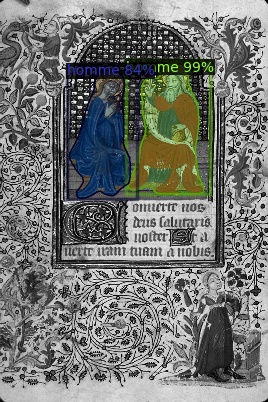 homme 84%
me 99%
onuerte nos
deus salutaris
noster Et a
uerte iram tuam a nobis